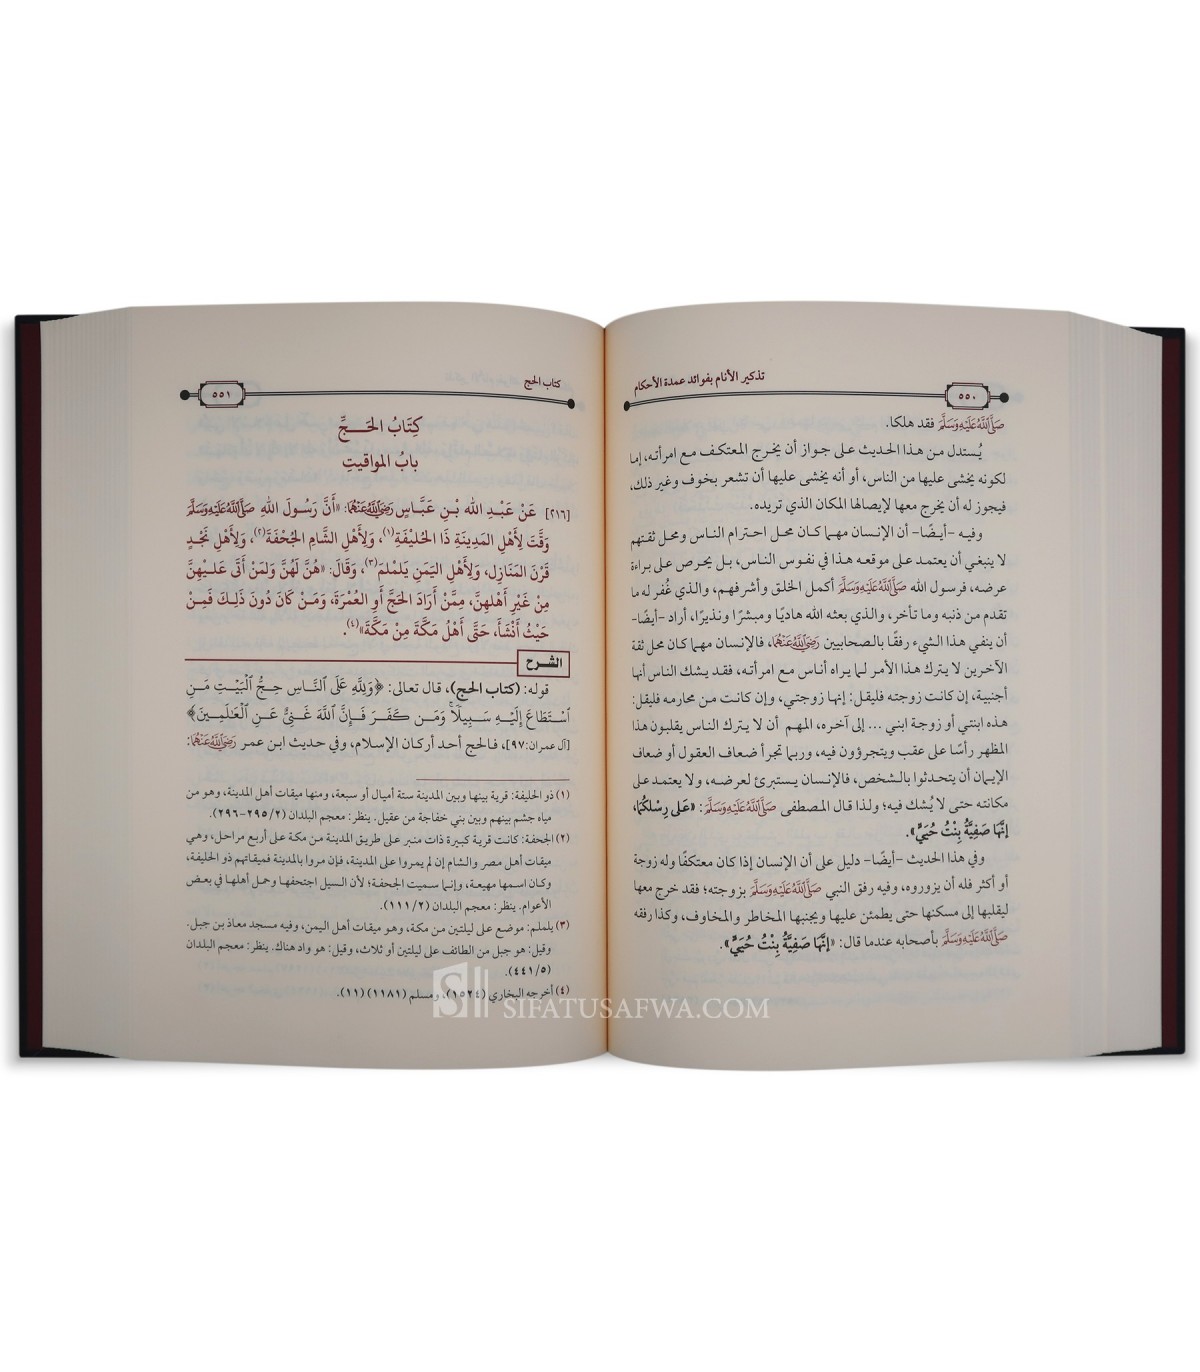 ٥٥٠
تذكير الأنام بفوائد عمدة الأحكام
صَلَّاللَّهُ عَلَيْهِ وَسَلَّمَ فقد هلكا.
يُستدل من هذا الحديث على جواز أن يخرج المعتكف مع امرأته، إما
لكونه يخشى عليها من الناس، أو أنه يخشى عليها أن تشعر بخوف وغير ذلك،
فيجوز له أن يخرج معها لإيصالها المكان الذي تريده.
وفيه -أيضًا- أن الإنسان مهما كان محل احترام الناس ومحل ثقتهم
لا ينبغي أن يعتمد على موقعه هذا في نفوس الناس، بل يحرص على براءة
عرضه، فرسول الله صَلَّاللَّهُ عَلَيْهِ وَسَلَّمَ أكمل الخلق وأشرفهم، والذي غُفر له ما
تقدم من ذنبه وما تأخر، والذي بعثه الله هاديًا ومبشرًا ونذيرًا، أراد -أيضًا-
أن ينفي هذا الشيء رفقًا بالصحابيين رَضِيَاللَّهُ عَنْهُمَا، فالإنسان مهما كان محل ثقة
الآخرين لا يترك هذا الأمر لما يراه أناس مع امرأته، فقد يشك الناس أنها
أجنبية، إن كانت زوجته فليقل: إنها زوجتي، وإن كانت من محارمه فليقل:
هذه ابنتي أو زوجة ابني ... إلى آخره، المهم أن لا يترك الناس يقلبون هذا
المظهر رأسًا على عقب ويتجرؤون فيه، وربما تجرأ ضعاف العقول أو ضعاف
الإيمان أن يتحدثوا بالشخص، فالإنسان يستبرئ لعرضه، ولا يعتمد على
مكانته حتى لا يُشك فيه؛ ولذا قال المصطفى صَلَّاللَّهُ عَلَيْهِ وَسَلَّمَ: «عَلَى رِسْلِكُمَا،
إِنَّهَا صَفِيَّةُ بِنْتُ حُيَيٍّ».
وفي هذا الحديث -أيضًا- دليل على أن الإنسان إذا كان معتكفًا وله زوجة
أو أكثر فله أن يزوروه، وفيه رفق النبي صَلَّاللَّهُ عَلَيْهِ وَسَلَّمَ بزوجته؛ فقد خرج معها
ليقلبها إلى مسكنها حتى يطمئن عليها ويجنبها المخاطر والمخاوف، وكذا رفقه
صَلَّاللَّهُ عَلَيْهِ وَسَلَّمَ بأصحابه عندما قال: «إِنَّهَا صَفِيَّةُ بِنْتُ حُيَيٍّ».
كتاب الحج
٥٥١
كِتَابُ الحَجِّ
بابُ المواقيتِ
[٢١٦] عَنْ عَبْدِ الله بْنِ عَبَّاسٍ رَضِيَاللَّهُ عَنْهُمَا: «أَنَّ رَسُولَ اللهِ صَلَّاللَّهُ عَلَيْهِ وَسَلَّمَ
وَقَّتَ لِأَهْلِ المَدِينَةِ ذَا الحُلَيْفَةِ(١)، وَلِأَهْلِ الشَّامِ الجُحْفَةَ(٢)، وَلِأَهْلِ نَجْدٍ
قَرْنَ المَنَازِلِ، وَلِأَهْلِ اليَمَنِ يَلَمْلَمَ(٣)، وَقَالَ: «هُنَّ لَهُنَّ وَلِمَنْ أَتَى عَلَيْهِنَّ
مِنْ غَيْرِ أَهْلِهِنَّ، مِمَّنْ أَرَادَ الحَجَّ أَوِ العُمْرَةَ، وَمَنْ كَانَ دُونَ ذَلِكَ فَمِنْ
حَيْثُ أَنْشَأَ، حَتَّى أَهْلُ مَكَّةَ مِنْ مَكَّةَ»(٤).
الشرح
قوله: (كتاب الحج)، قال تعالى: ﴿وَلِلَّهِ عَلَى النَّاسِ حِجُّ الْبَيْتِ مَنِ
اسْتَطَاعَ إِلَيْهِ سَبِيلًا وَمَن كَفَرَ فَإِنَّ اللَّهَ غَنِيٌّ عَنِ الْعَالَمِينَ﴾
[آل عمران: ٩٧]، فالحج أحد أركان الإسلام، وفي حديث ابن عمر رَضِيَاللَّهُ عَنْهُمَا:
(١) ذو الحليفة: قرية بينها وبين المدينة ستة أميال أو سبعة، ومنها ميقات أهل المدينة، وهو من
مياه جشم بينهم وبين بني خفاجة من عقيل. ينظر: معجم البلدان (٢/ ٢٩٥-٢٩٦).
(٢) الجحفة: كانت قرية كبيرة ذات منبر على طريق المدينة من مكة على أربع مراحل، وهي
ميقات أهل مصر والشام إن لم يمروا على المدينة، فإن مروا بالمدينة فميقاتهم ذو الحليفة،
وكان اسمها مهيعة، وإنما سميت الجحفة؛ لأن السيل اجتحفها وحمل أهلها في بعض
الأعوام. ينظر: معجم البلدان (٢/ ١١١).
(٣) يلملم: موضع على ليلتين من مكة، وهو ميقات أهل اليمن، وفيه مسجد معاذ بن جبل.
وقيل: هو جبل من الطائف على ليلتين أو ثلاث، وقيل: هو واد هناك. ينظر: معجم البلدان
(٥/ ٤٤١).
(٤) أخرجه البخاري (١٥٢٤)، ومسلم (١١٨١) (١١).
SIFATUSAFWA.COM